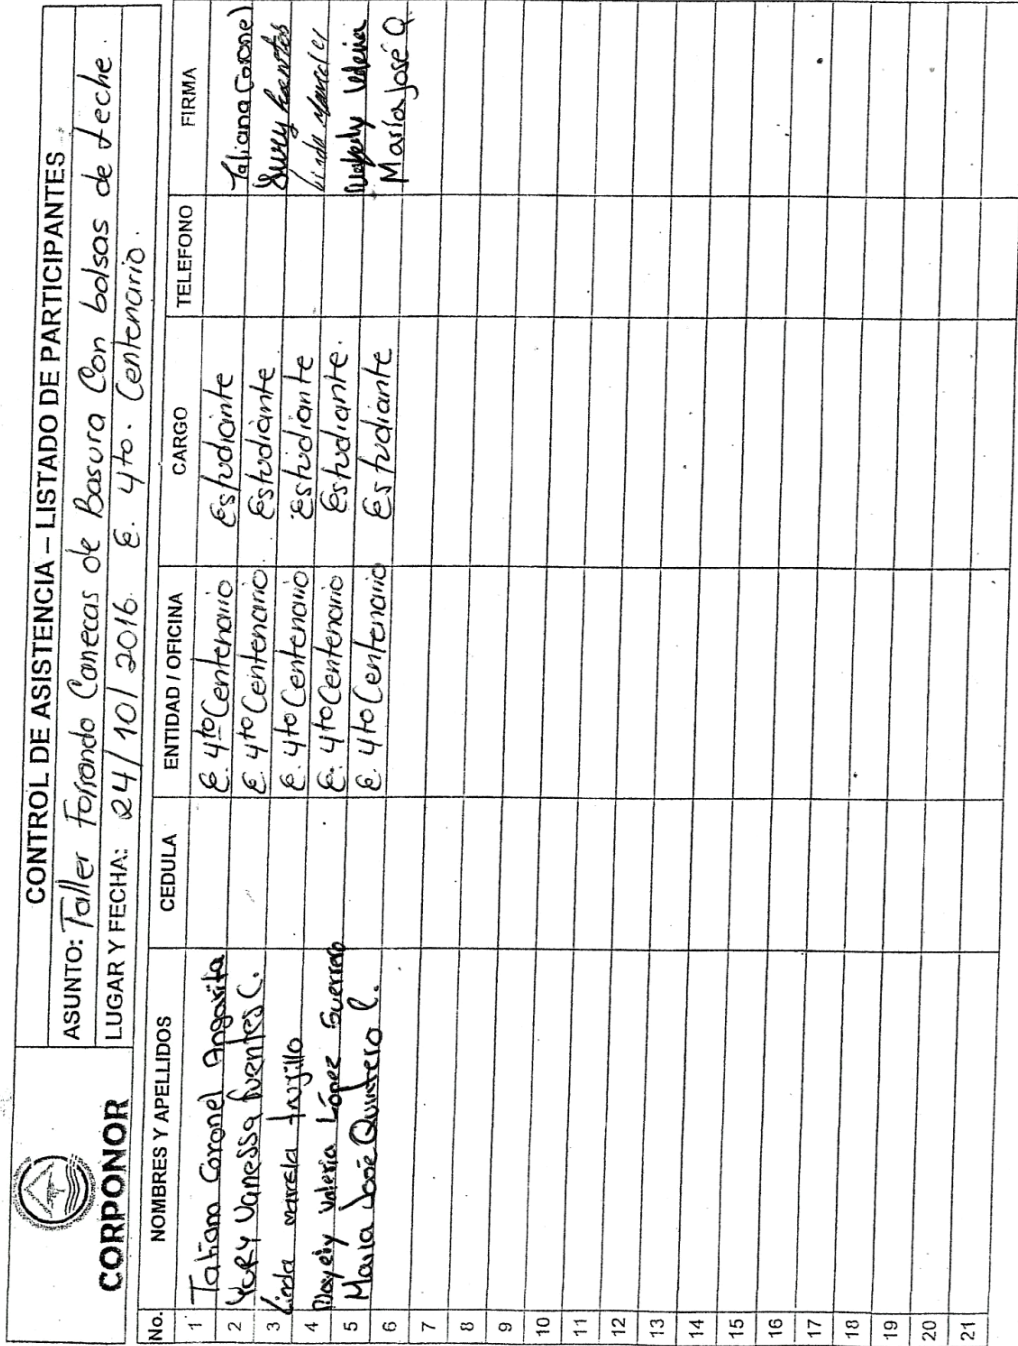 CORPONOR
CONTROL DE ASISTENCIA – LISTADO DE PARTICIPANTES
ASUNTO: Taller Forrando Canecas de Basura Con bolsas de Leche.
LUGAR Y FECHA: 24/10/2016. E. 4to. Centenario.
No. NOMBRES Y APELLIDOS CEDULA ENTIDAD / OFICINA CARGO TELEFONO FIRMA
1 Tatiana Coronel Angarita E. 4to Centenario Estudiante Tatiana Coronel
2 Yury Vanessa fuentes C. E. 4to Centenario. Estudiante Yury fuentes
3 Linda marcela trujillo E. 4to Centenario Estudiante Linda marcela
4 Valeria López Guerrero E. 4to Centenario Estudiante. Valeria
5 Maria José Quintero l. E. 4to Centenario Estudiante María José Q
6
7
8
9
10
11
12
13
14
15
16
17
18
19
20
21